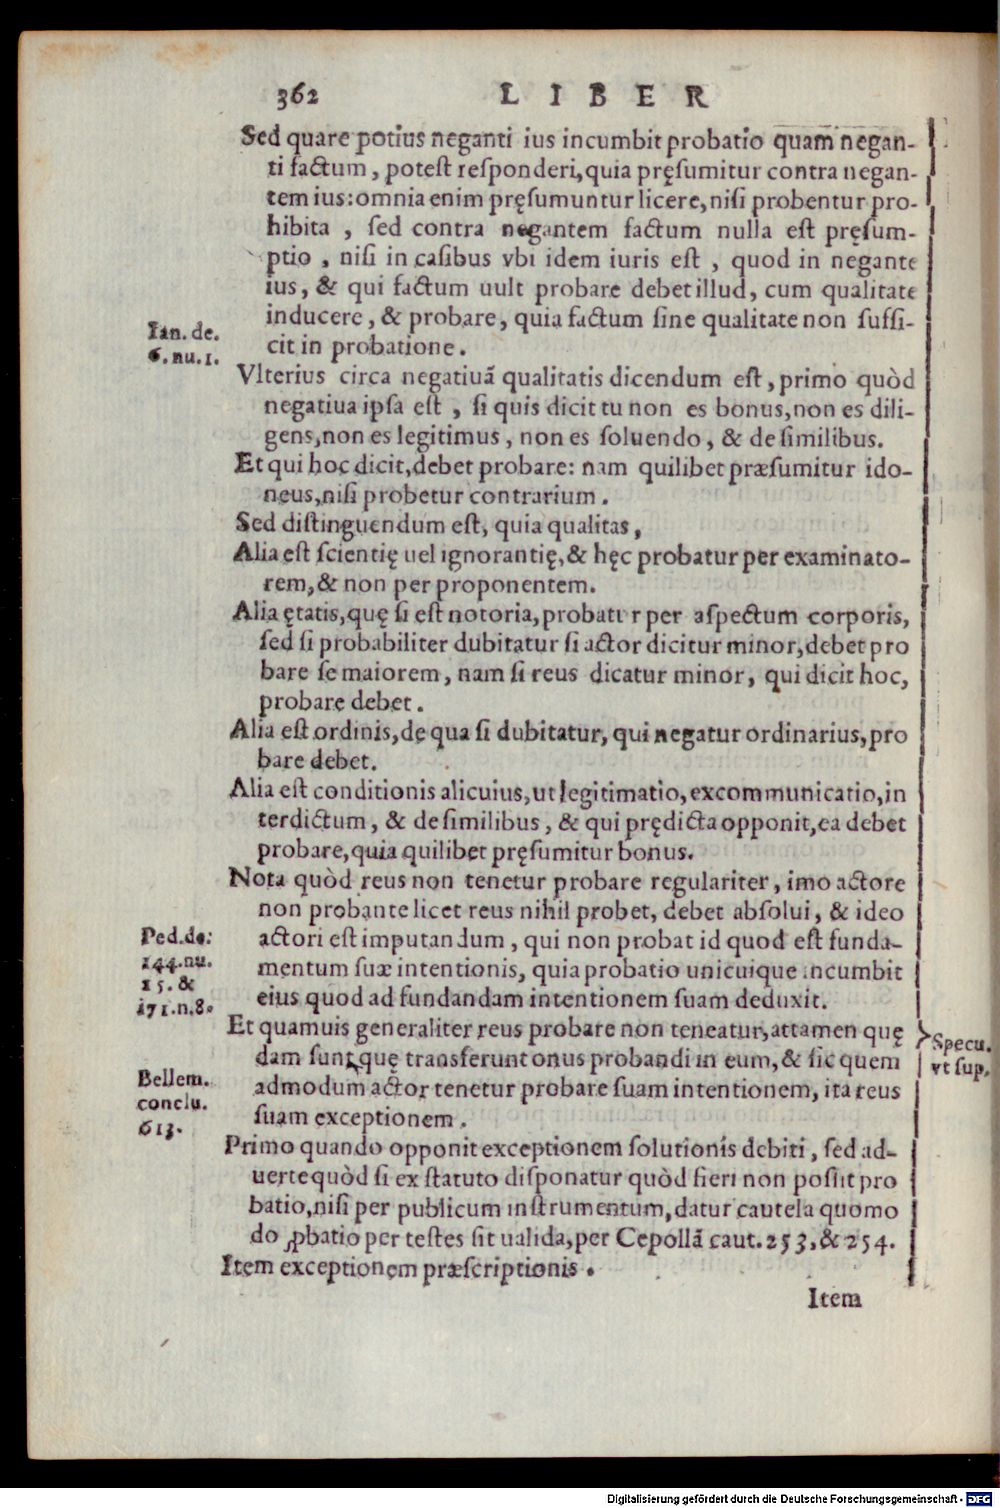 362 LIBER
Sed quare potius neganti ius incumbit probatio quam negan-
ti factum, potest responderi, quia pręsumitur contra negan-
tem ius: omnia enim pręsumuntur licere, nisi probentur pro-
hibita , sed contra negantem factum nulla est pręsum-
ptio , nisi in casibus vbi idem iuris est , quod in negante
ius, & qui factum uult probare debet illud, cum qualitate
inducere, & probare, quia factum sine qualitate non suffi-
cit in probatione.
Ian. de.
6. nu. 1.
Vlterius circa negatiuã qualitatis dicendum est, primo quòd
negatiua ipsa est , si quis dicit tu non es bonus, non es dili-
gens, non es legitimus, non es soluendo, & de similibus.
Et qui hoc dicit, debet probare: nam quilibet præsumitur ido-
neus, nisi probetur contrarium.
Sed distinguendum est, quia qualitas,
Alia est scientię uel ignorantię, & hęc probatur per examinato-
rem, & non per proponentem.
Alia ętatis, quę si est notoria, probatur per aspectum corporis,
sed si probabiliter dubitatur si actor dicitur minor, debet pro
bare se maiorem, nam si reus dicatur minor, qui dicit hoc,
probare debet.
Alia est ordinis, de qua si dubitatur, qui negatur ordinarius, pro
bare debet.
Alia est conditionis alicuius, ut legitimatio, excommunicatio, in
terdictum, & de similibus, & qui prędicta opponit, ea debet
probare, quia quilibet pręsumitur bonus.
Nota quòd reus non tenetur probare regulariter, imo actore
non probante licet reus nihil probet, debet absolui, & ideo
actori est imputandum, qui non probat id quod est funda-
mentum suæ intentionis, quia probatio unicuique incumbit
eius quod ad fundandam intentionem suam deduxit.
Ped. de.
144. nu.
15. &
171. n. 8.
Et quamuis generaliter reus probare non teneatur, attamen quę
dam sunt, quę transferunt onus probandi in eum, & sic quem
admodum actor tenetur probare suam intentionem, ita reus
suam exceptionem.
Specu.
vt sup.
Bellem.
conclu.
613.
Primo quando opponit exceptionem solutionis debiti, sed ad-
uerte quòd si ex statuto disponatur quòd fieri non possit pro
batio, nisi per publicum instrumentum, datur cautela quomo
do ꝓbatio per testes sit ualida, per Cepollã caut. 253, & 254.
Item exceptionem præscriptionis.
Item
Digitalisierung gefördert durch die Deutsche Forschungsgemeinschaft - DFG